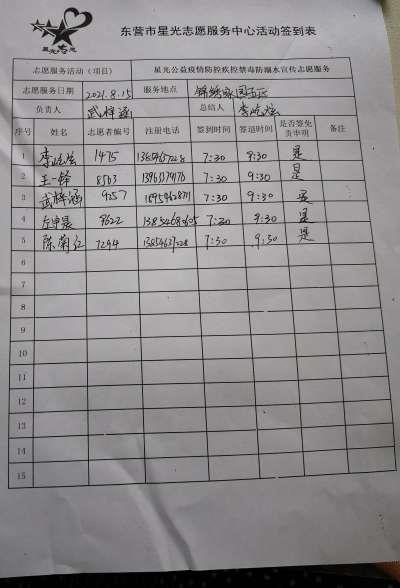 星光志愿
东营市星光志愿服务中心活动签到表
志愿服务活动（项目） 星光公益疫情防控疾控禁毒防溺水宣传志愿服务
志愿服务日期 2021.8.15 服务地点 锦绣家园五区
负责人 武梓涵 总结人
序号 姓名 志愿者编号 注册电话 签到时间 签退时间 是否签免责申明 备注
1 1475 7:30 9:30 是
2 王一铎 8503 7:30 9:30 是
3 武梓涵 9257 7:30 9:30 是
4 9622 7:30 9:30 是
5 陈菊红 7294 7:30 9:30 是
6
7
8
9
10
11
12
13
14
15